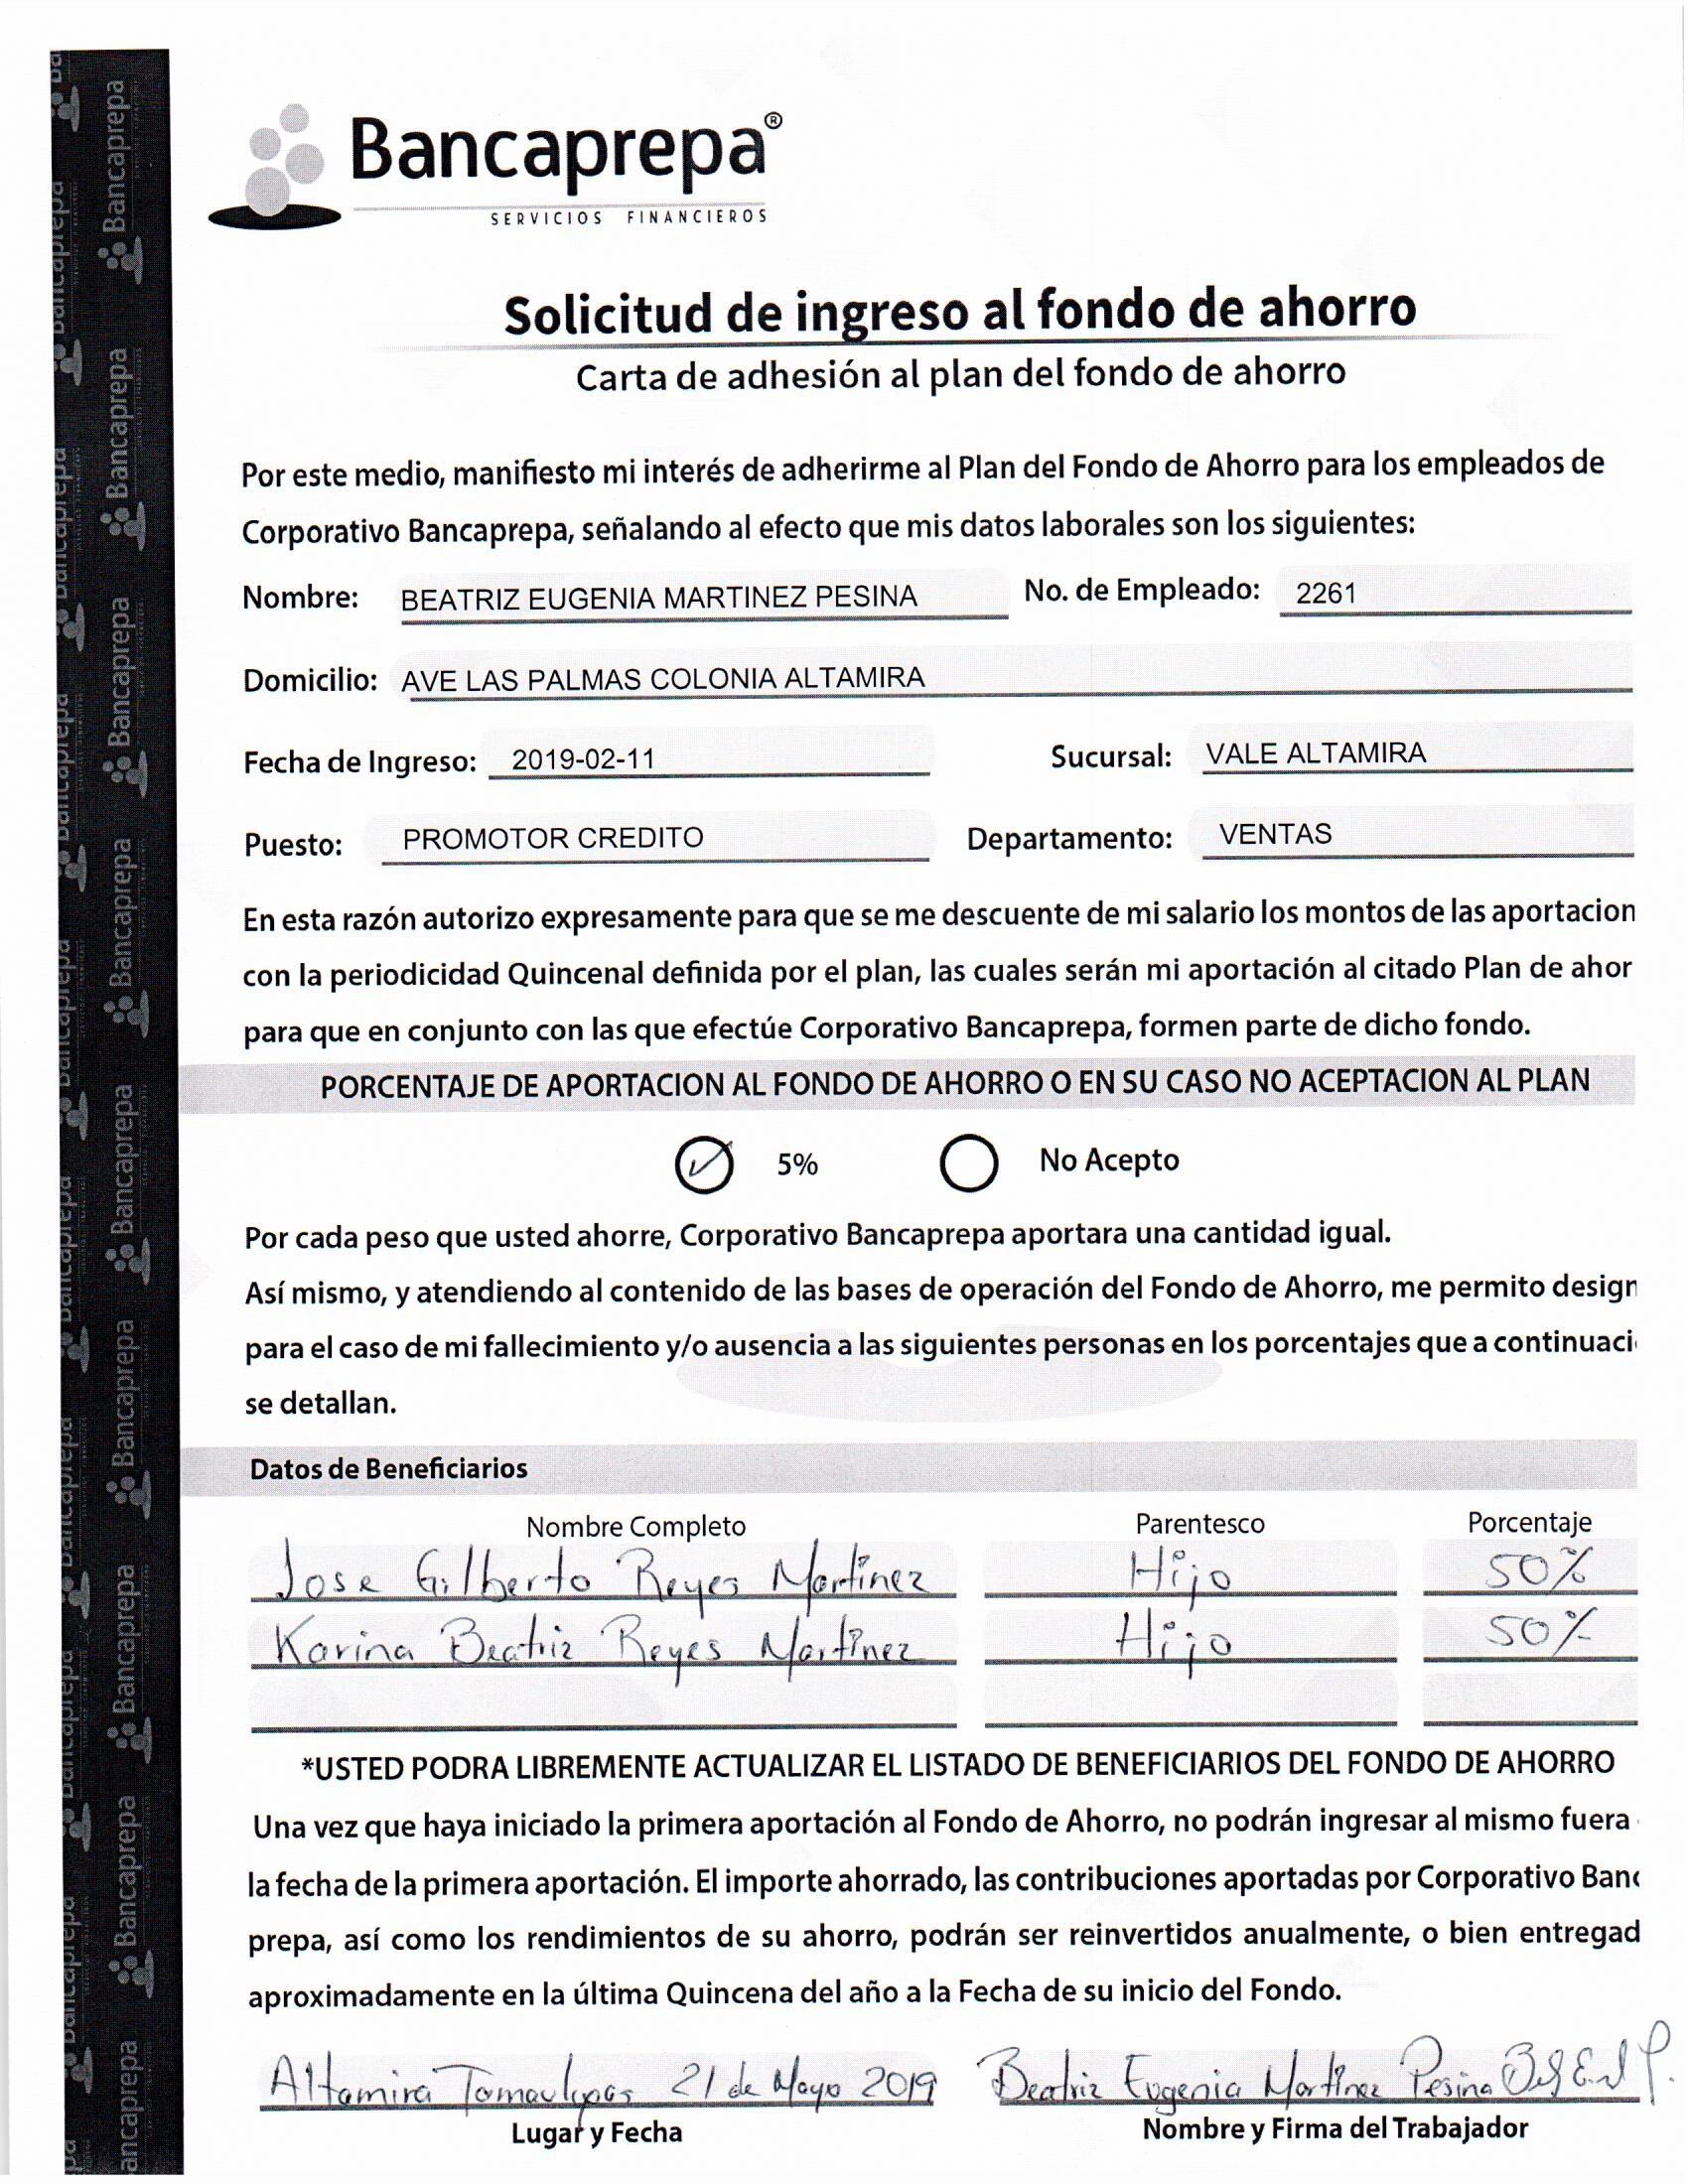 Bancaprepa®
SERVICIOS FINANCIEROS
Solicitud de ingreso al fondo de ahorro
Carta de adhesión al plan del fondo de ahorro
Por este medio, manifiesto mi interés de adherirme al Plan del Fondo de Ahorro para los empleados de
Corporativo Bancaprepa, señalando al efecto que mis datos laborales son los siguientes:
Nombre: BEATRIZ EUGENIA MARTINEZ PESINA No. de Empleado: 2261
Domicilio: AVE LAS PALMAS COLONIA ALTAMIRA
Fecha de Ingreso: 2019-02-11 Sucursal: VALE ALTAMIRA
Puesto: PROMOTOR CREDITO Departamento: VENTAS
En esta razón autorizo expresamente para que se me descuente de mi salario los montos de las aportacion
con la periodicidad Quincenal definida por el plan, las cuales serán mi aportación al citado Plan de ahor
para que en conjunto con las que efectúe Corporativo Bancaprepa, formen parte de dicho fondo.
PORCENTAJE DE APORTACION AL FONDO DE AHORRO O EN SU CASO NO ACEPTACION AL PLAN
5% No Acepto
Por cada peso que usted ahorre, Corporativo Bancaprepa aportara una cantidad igual.
Así mismo, y atendiendo al contenido de las bases de operación del Fondo de Ahorro, me permito design
para el caso de mi fallecimiento y/o ausencia a las siguientes personas en los porcentajes que a continuaci
se detallan.
Datos de Beneficiarios
Nombre Completo Parentesco Porcentaje
Jose Gilberto Reyes Martinez Hijo 50%
Karina Beatriz Reyes Martinez Hijo 50%
*USTED PODRA LIBREMENTE ACTUALIZAR EL LISTADO DE BENEFICIARIOS DEL FONDO DE AHORRO
Una vez que haya iniciado la primera aportación al Fondo de Ahorro, no podrán ingresar al mismo fuera
la fecha de la primera aportación. El importe ahorrado, las contribuciones aportadas por Corporativo Banc
prepa, así como los rendimientos de su ahorro, podrán ser reinvertidos anualmente, o bien entregad
aproximadamente en la última Quincena del año a la Fecha de su inicio del Fondo.
Altamira Tamaulipas 21 de Mayo 2019 Beatriz Eugenia Martinez Pesina
Lugar y Fecha Nombre y Firma del Trabajador